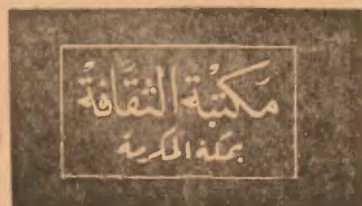 مَكتبَة الثقَّافَة
بمكة المكرمة